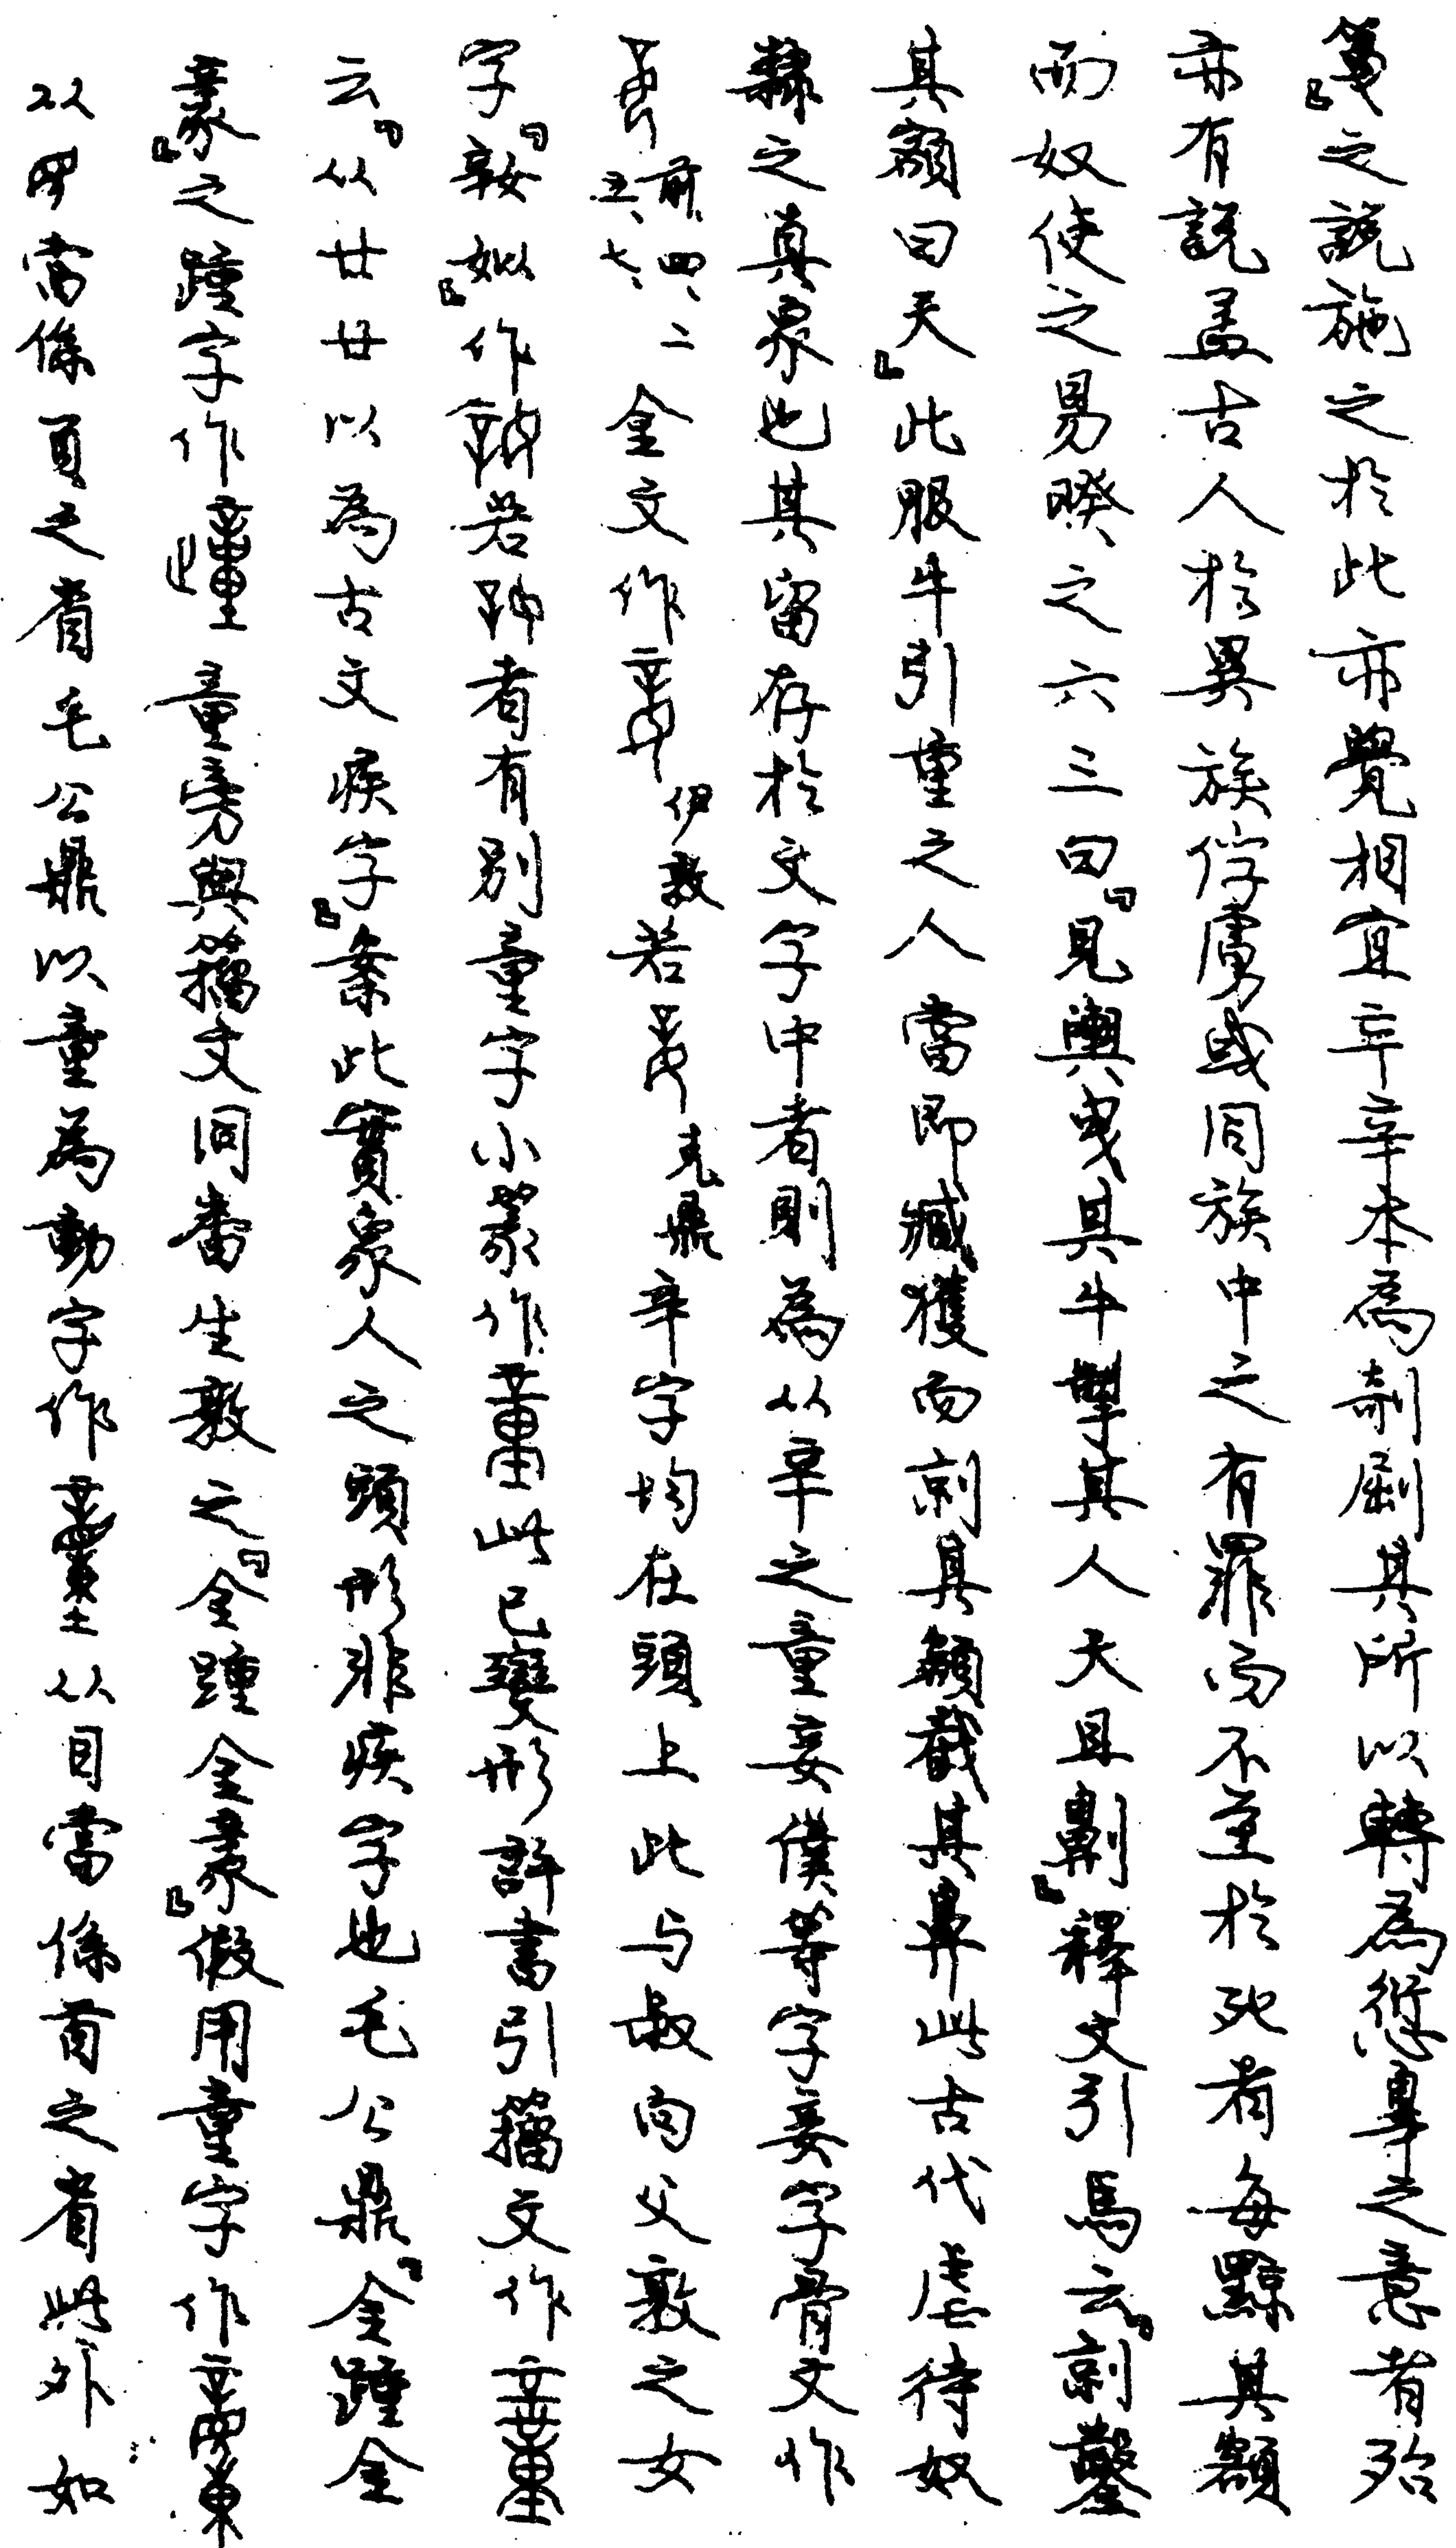 篾』之說施之於此亦覺相宜䇂辛本為剞劂其所以轉為愆辠之意者殆
亦有說蓋古人於異族俘虜或同族中之有罪而不至於死者每黥其額
而奴使之易睽之六三曰『見輿曳其牛掣其人天且劓』釋文引馬云『剠鑿
其額曰天』此服牛引重之人當即臧獲而剠其額截其鼻此古代虐待奴
隸之真象也其留存於文字中者則為从䇂之童妾僕等字妾字骨文作
前、四、二五、七、金文作伊𣪘若克鼎辛字均在頭上此与叔向父𣪘之女
字『㜪姒』作若者有別童字小篆作此已變形許書引籀文作
云『从廿廿以為古文疾字』案此實象人之頭形非疾字也毛公鼎『金踵金
豙』之踵字作童旁與籀文同番生𣪘之『金踵金豙』假用童字作
从當係頁之省毛公鼎以童為動字作从目當係首之省此外如